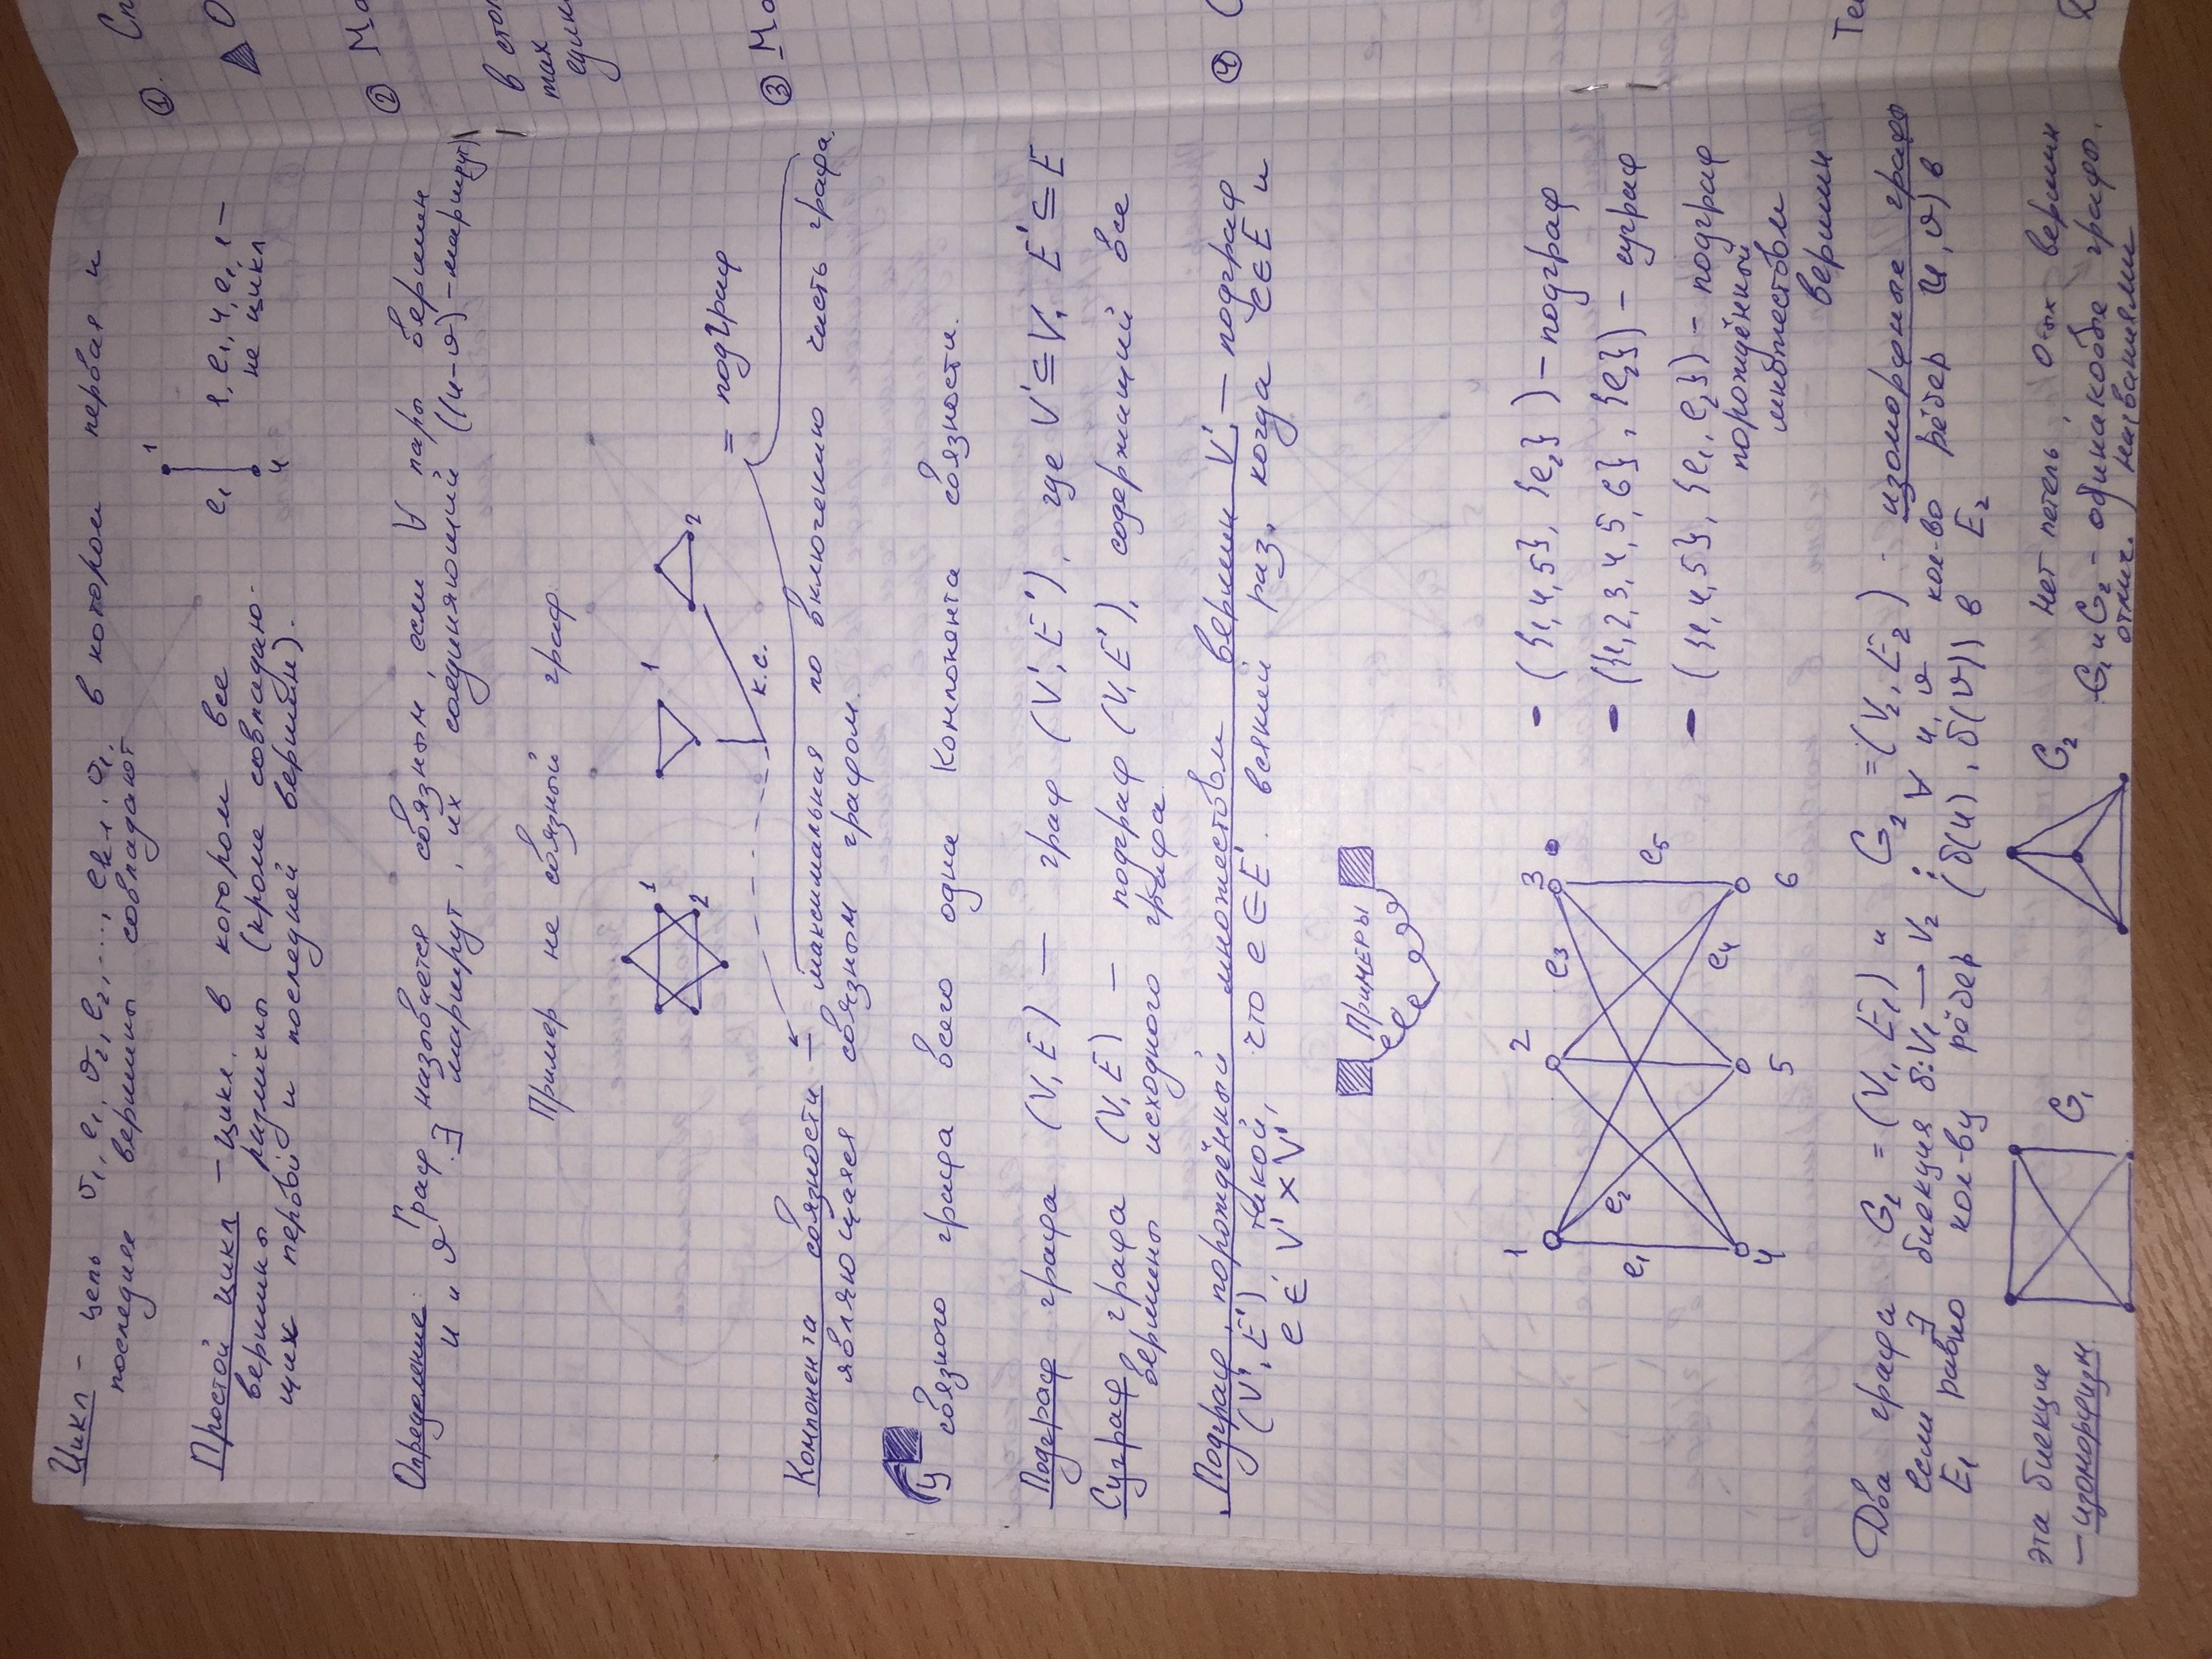 Цикл – цепь v₁, e₁, v₂, e₂, ..., eₖ₋₁, v₁, в котором первая и
последняя вершины совпадают
Простой цикл – цикл, в котором все
вершины различны (кроме совпадаю-
щих первой и последней вершин).
1
e₁
4
1, e₁, 4, e₁, 1 –
не цикл
Определение: Граф называется связным, если ∀ пары вершин
u и v ∃ маршрут, их соединяющий ((u-v)-маршрут)
Пример не связный граф
1
2
1
2
к.с.
= подграф
Компонента связности – максимальная по включению часть графа,
являющаяся связным графом.
У связного графа всего одна компонента связности.
Подграф графа (V, E) – граф (V', E'), где V' ⊆ V, E' ⊆ E
Суграф графа (V, E) – подграф (V, E'), содержащий все
вершины исходного графа.
Подграф, порождённый множеством вершин V' – подграф
(V', E') такой, что e ∈ E' всякий раз, когда e ∈ E и
e ∈ V' × V'
Примеры
1 2 3
e₃
e₂
e₁
e₅
e₄
4 5 6
- ({1,4,5}, {e₂}) – подграф
- ({1,2,3,4,5,6}, {e₂}) – суграф
- ({1,4,5}, {e₁, e₂}) – подграф
порождённый
множеством
вершин
Два графа G₁ = (V₁, E₁) и G₂ = (V₂, E₂) - изоморфные графы
если ∃ биекция δ: V₁ → V₂ : ∀ u, v кол-во рёбер (u, v) в
E₁ равно кол-ву рёбер (δ(u), δ(v)) в E₂
эта биекция
– изоморфизм
G₁
G₂
Нет петель, 0-ых вершин
G₁ и G₂ - одинаковые графы,
отлич. названиями
① Сп
② Ма
в стол
тах
един
③ Ма
④